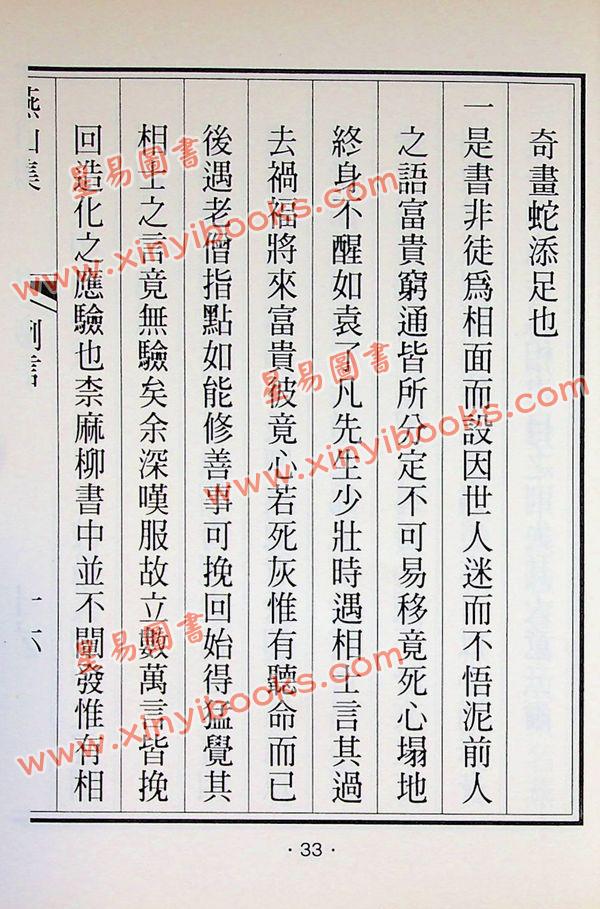 奇畫蛇添足也
一是書非徒爲相面而設因世人迷而不悟泥前人
之語富貴窮通皆所分定不可易移竟死心塌地
終身不醒如袁了凡先生少壯時遇相士言其過
去禍福將來富貴彼竟心若死灰惟有聽命而已
後遇老僧指點如能修善事可挽回始得猛覺其
相士之言竟無驗矣余深嘆服故立數萬言皆挽
回造化之應驗也柰麻柳書中並不闡發惟有相
燕山集
例言
十六
· 33 ·
星易圖書
www.xinyibooks.com
星易圖書
www.xinyibooks.com
星易圖書
www.xinyibooks.com